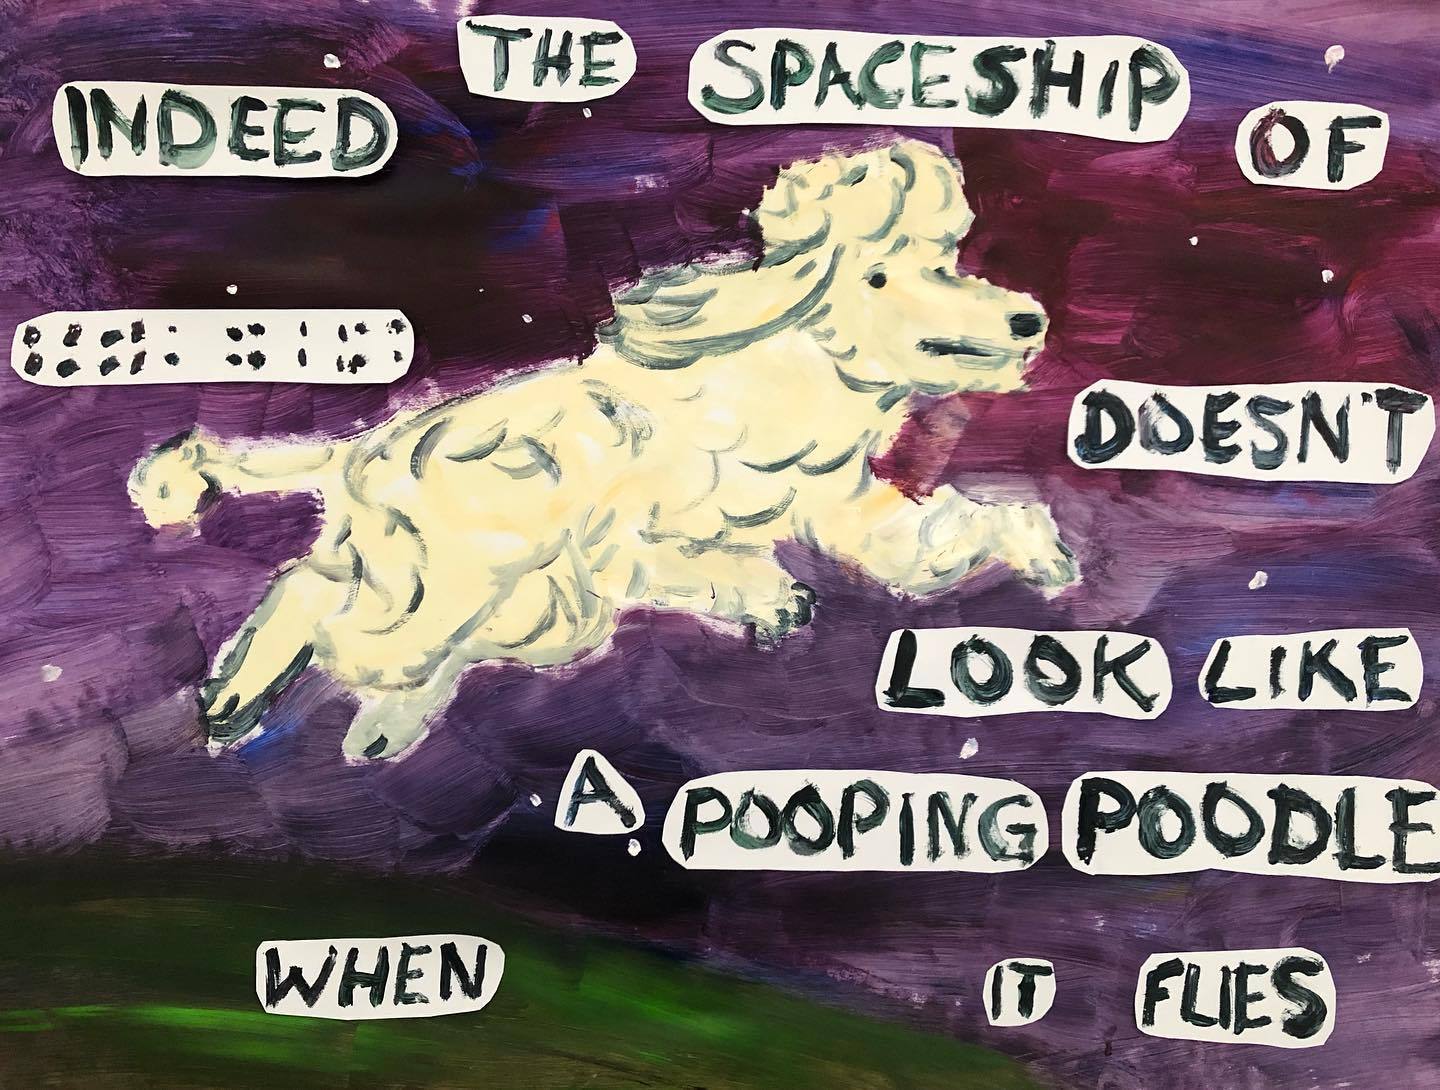 INDEED THE SPACESHIP OF
DOESN'T
LOOK LIKE
A POOPING POODLE
WHEN IT FLIES